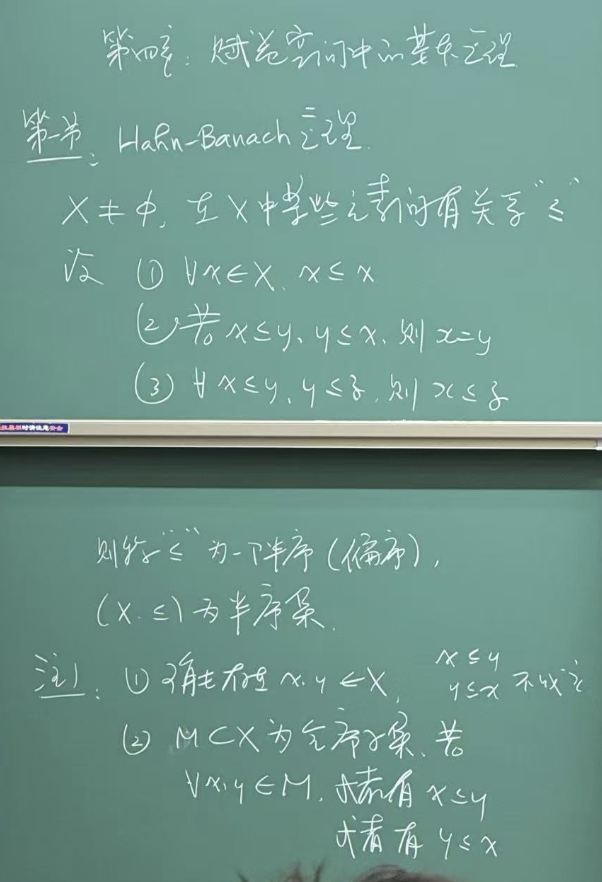 第四章：赋范空间中的基本定理
第一节：Hahn-Banach 定理.
X ≠ φ, 在 X 中某些元素间有关系"≤"
设 ① ∀x∈X, x≤x
② 若 x≤y, y≤x, 则 x=y
(3) ∀ x≤y, y≤z, 则 x≤z
则称"≤"为一个半序(偏序),
(X, ≤) 为半序集.
注: ① 可能存在 x, y ∈ X, x≤y
y≤x 不成立
② M⊂X 为全序子集, 若
∀x,y∈M, 或者有 x≤y
或者有 y≤x